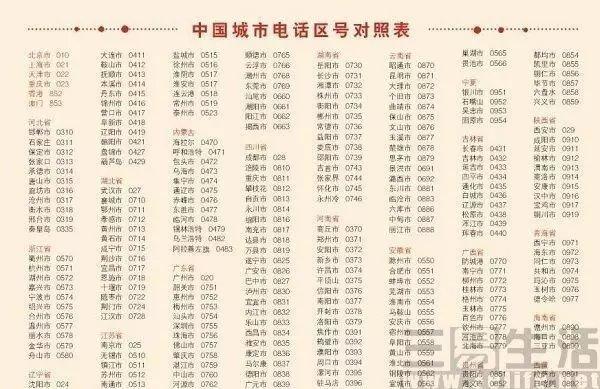 中国城市电话区号对照表
北京市 010
上海市 021
天津市 022
重庆市 023
香港 852
澳门 853
河北省
邯郸市 0310
石家庄 0311
保定市 0312
张家口 0313
承德市 0314
唐山市 0315
廊坊市 0316
沧州市 0317
衡水市 0318
邢台市 0319
秦皇岛 0335
浙江省
衢州市 0570
杭州市 0571
湖州市 0572
嘉兴市 0573
宁波市 0574
绍兴市 0575
台州市 0576
温州市 0577
丽水市 0578
金华市 0579
舟山市 0580
辽宁省
沈阳市 024
大连市 0411
鞍山市 0412
抚顺市 0413
本溪市 0414
丹东市 0415
锦州市 0416
营口市 0417
阜新市 0418
辽阳市 0419
朝阳市 0421
盘锦市 0427
葫芦岛 0429
湖北省
武汉市 027
襄城市 0710
鄂州市 0711
孝感市 0712
黄州市 0713
黄石市 0714
咸宁市 0715
荆沙市 0716
宜昌市 0717
恩施市 0718
十堰市 0719
随枣市 0722
荆门市 0724
江汉市 0728
江苏省
南京市 025
无锡市 0510
镇江市 0511
苏州市 0512
盐城市 0515
徐州市 0516
淮阴市 0517
淮安市 0517
连云港 0518
常州市 0519
泰州市 0523
内蒙古
海拉尔 0470
呼和浩特 0471
包头市 0472
乌海市 0473
集宁市 0474
通辽市 0475
赤峰市 0476
东胜市 0477
临河市 0478
锡林浩特 0479
乌兰浩特 0482
阿拉善左旗 0483
广东省
广州市 020
韶关市 0751
惠州市 0752
梅州市 0753
汕头市 0754
深圳市 0755
珠海市 0756
佛山市 0757
肇庆市 0758
湛江市 0759
顺德市 0765
云浮市 0766
潮州市 0768
东莞市 0769
汕尾市 0660
潮阳市 0661
阳江市 0662
揭西市 0663
四川省
成都市 028
涪陵市 0810
重庆市 0811
攀枝花 0812
自贡市 0813
永川市 0814
绵阳市 0816
南充市 0817
达县市 0818
万县市 0819
遂宁市 0825
广安市 0826
巴中市 0827
泸州市 0830
宜宾市 0831
内江市 0832
乐山市 0833
西昌市 0834
雅安市 0835
康定市 0836
马尔康 0837
德阳市 0838
广元市 0839
泸州市 0840
湖南省
岳阳市 0730
长沙市 0731
湘潭市 0732
株州市 0733
衡阳市 0734
郴州市 0735
常德市 0736
益阳市 0737
娄底市 0738
邵阳市 0739
吉首市 0743
张家界 0744
怀化市 0745
永州冷 0746
河南省
商丘市 0370
郑州市 0371
安阳市 0372
新乡市 0373
许昌市 0374
平顶山 0375
信阳市 0376
南阳市 0377
开封市 0378
洛阳市 0379
焦作市 0391
鹤壁市 0392
濮阳市 0393
周口市 0394
漯河市 0395
驻马店 0396
云南省
昭通市 0870
昆明市 0871
大理市 0872
个旧市 0873
曲靖市 0874
保山市 0875
文山市 0876
玉溪市 0877
楚雄市 0878
思茅市 0879
景洪市 0691
潞西市 0692
东川市 0881
临沧市 0883
六库市 0886
中甸市 0887
丽江市 0888
安徽省
滁州市 0550
合肥市 0551
蚌埠市 0552
芜湖市 0553
淮南市 0554
马鞍山 0555
安庆市 0556
宿州市 0557
阜阳市 0558
黄山市 0559
淮北市 0561
铜陵市 0562
宣城市 0563
六安市 0564
巢湖市 0565
贵池市 0566
宁夏
银川市 0951
石嘴山 0952
吴忠市 0953
固原市 0954
吉林省
长春市 0431
吉林市 0432
延吉市 0433
四平市 0434
通化市 0435
白城市 0436
辽源市 0437
松原市 0438
浑江市 0439
珲春市 0440
广西省
防城港 0770
南宁市 0771
柳州市 0772
桂林市 0773
梧州市 0774
玉林市 0775
百色市 0776
钦州市 0777
河池市 0778
北海市 0779
贵州省
都匀市 0854
凯里市 0855
铜仁市 0856
毕节市 0857
六盘水 0858
兴义市 0859
陕西省
西安市 029
咸阳市 0910
延安市 0911
榆林市 0912
渭南市 0913
商洛市 0914
安康市 0915
汉中市 0916
宝鸡市 0917
铜川市 0919
青海省
西宁市 0971
海东市 0972
同仁市 0973
共和市 0974
玛沁市 0975
玉树市 0976
德令哈 0977
海南省
儋州市 0890
海口市 0898
三亚市 0899